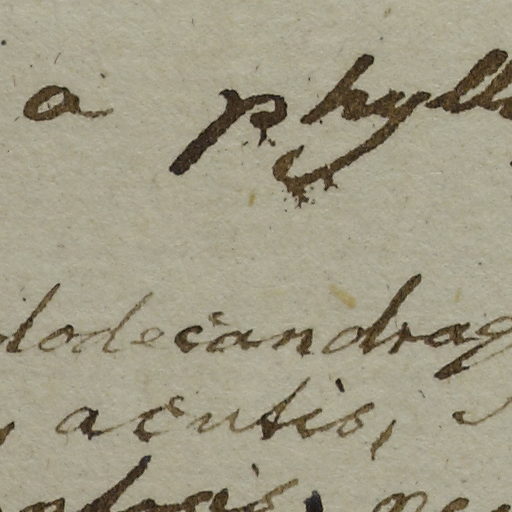 a phyll
dodecandrag
acutis,